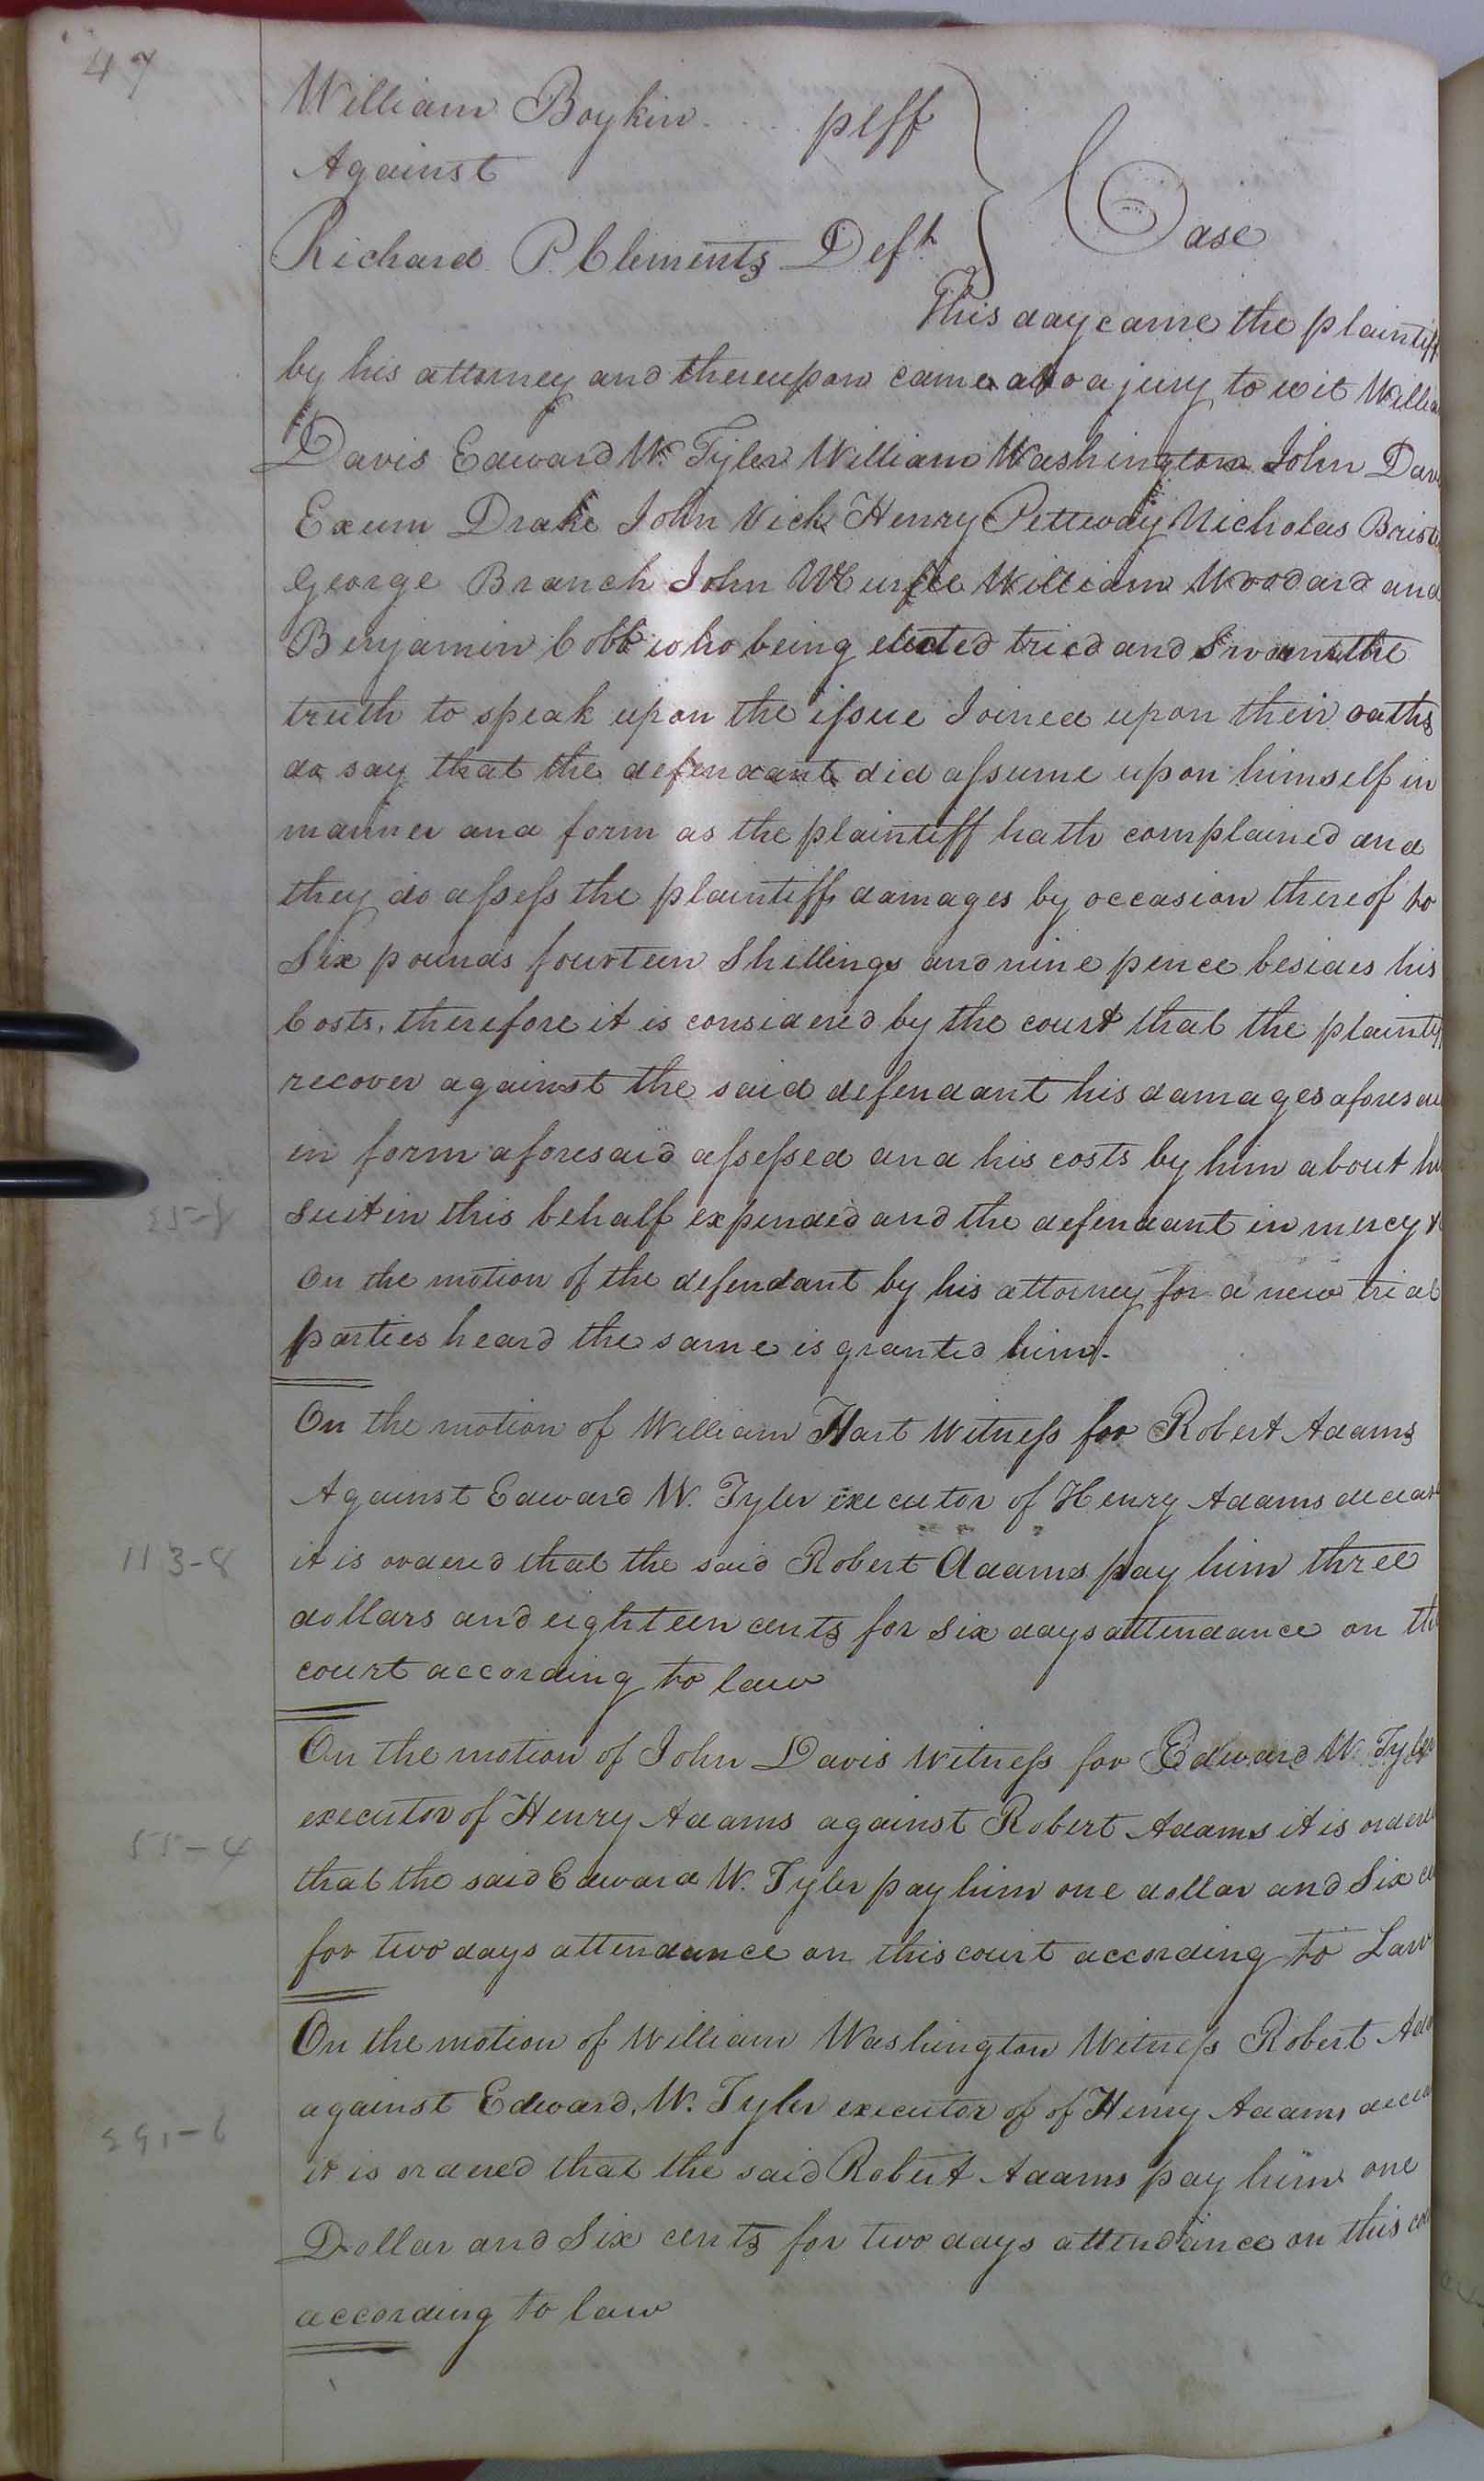 47
William Boykin .... plff
Against
Case
Richard P. Clements Deft
This day came the plaintiff
by his attorney and thereupon came also a jury to wit William
Davis Edward W. Tyler William Washington John Davi
Exum Drake John Vick Henry Petteway Nicholas
George Branch John William Woodard and
Benjamin Cobb who being elected tried and Sworn the
truth to speak upon the issue Joined upon their oaths
do say that the defendant did assume upon himself in
manner and form as the plaintiff hath complained and
they do assess the plaintiff damages by occasion thereof to
Six pounds fourteen Shillings and nine pence besides his
Costs, therefore it is considered by the court that the plaintiff
recover against the said defendant his damages aforesai
in form aforesaid assessed and his costs by him about hi
Suit in this behalf expended and the defendant in mercy &
On the motion of the defendant by his attorney for a new trial
parties heard the same is granted him.
On the motion of William Hart Witness for Robert Adams
Against Edward W. Tyler executor of Henry Adams deceas
113-8
it is ordered that the said Robert Adams pay him three
dollars and eighteen cents for Six days attendance on th
court according to law
On the motion of John Davis Witness for Edward W. Tyler
executor of Henry Adams against Robert Adams it is ordere
55-4
that the said Edward W. Tyler pay him one dollar and Six ce
for two days attendance on this court according to Law
On the motion of William Washington Witness Robert Ada
against Edward. W. Tyler executor of of Henry Adams decea
it is ordered that the said Robert Adams pay him one
Dollar and Six cents for two days attendance on this co
according to law